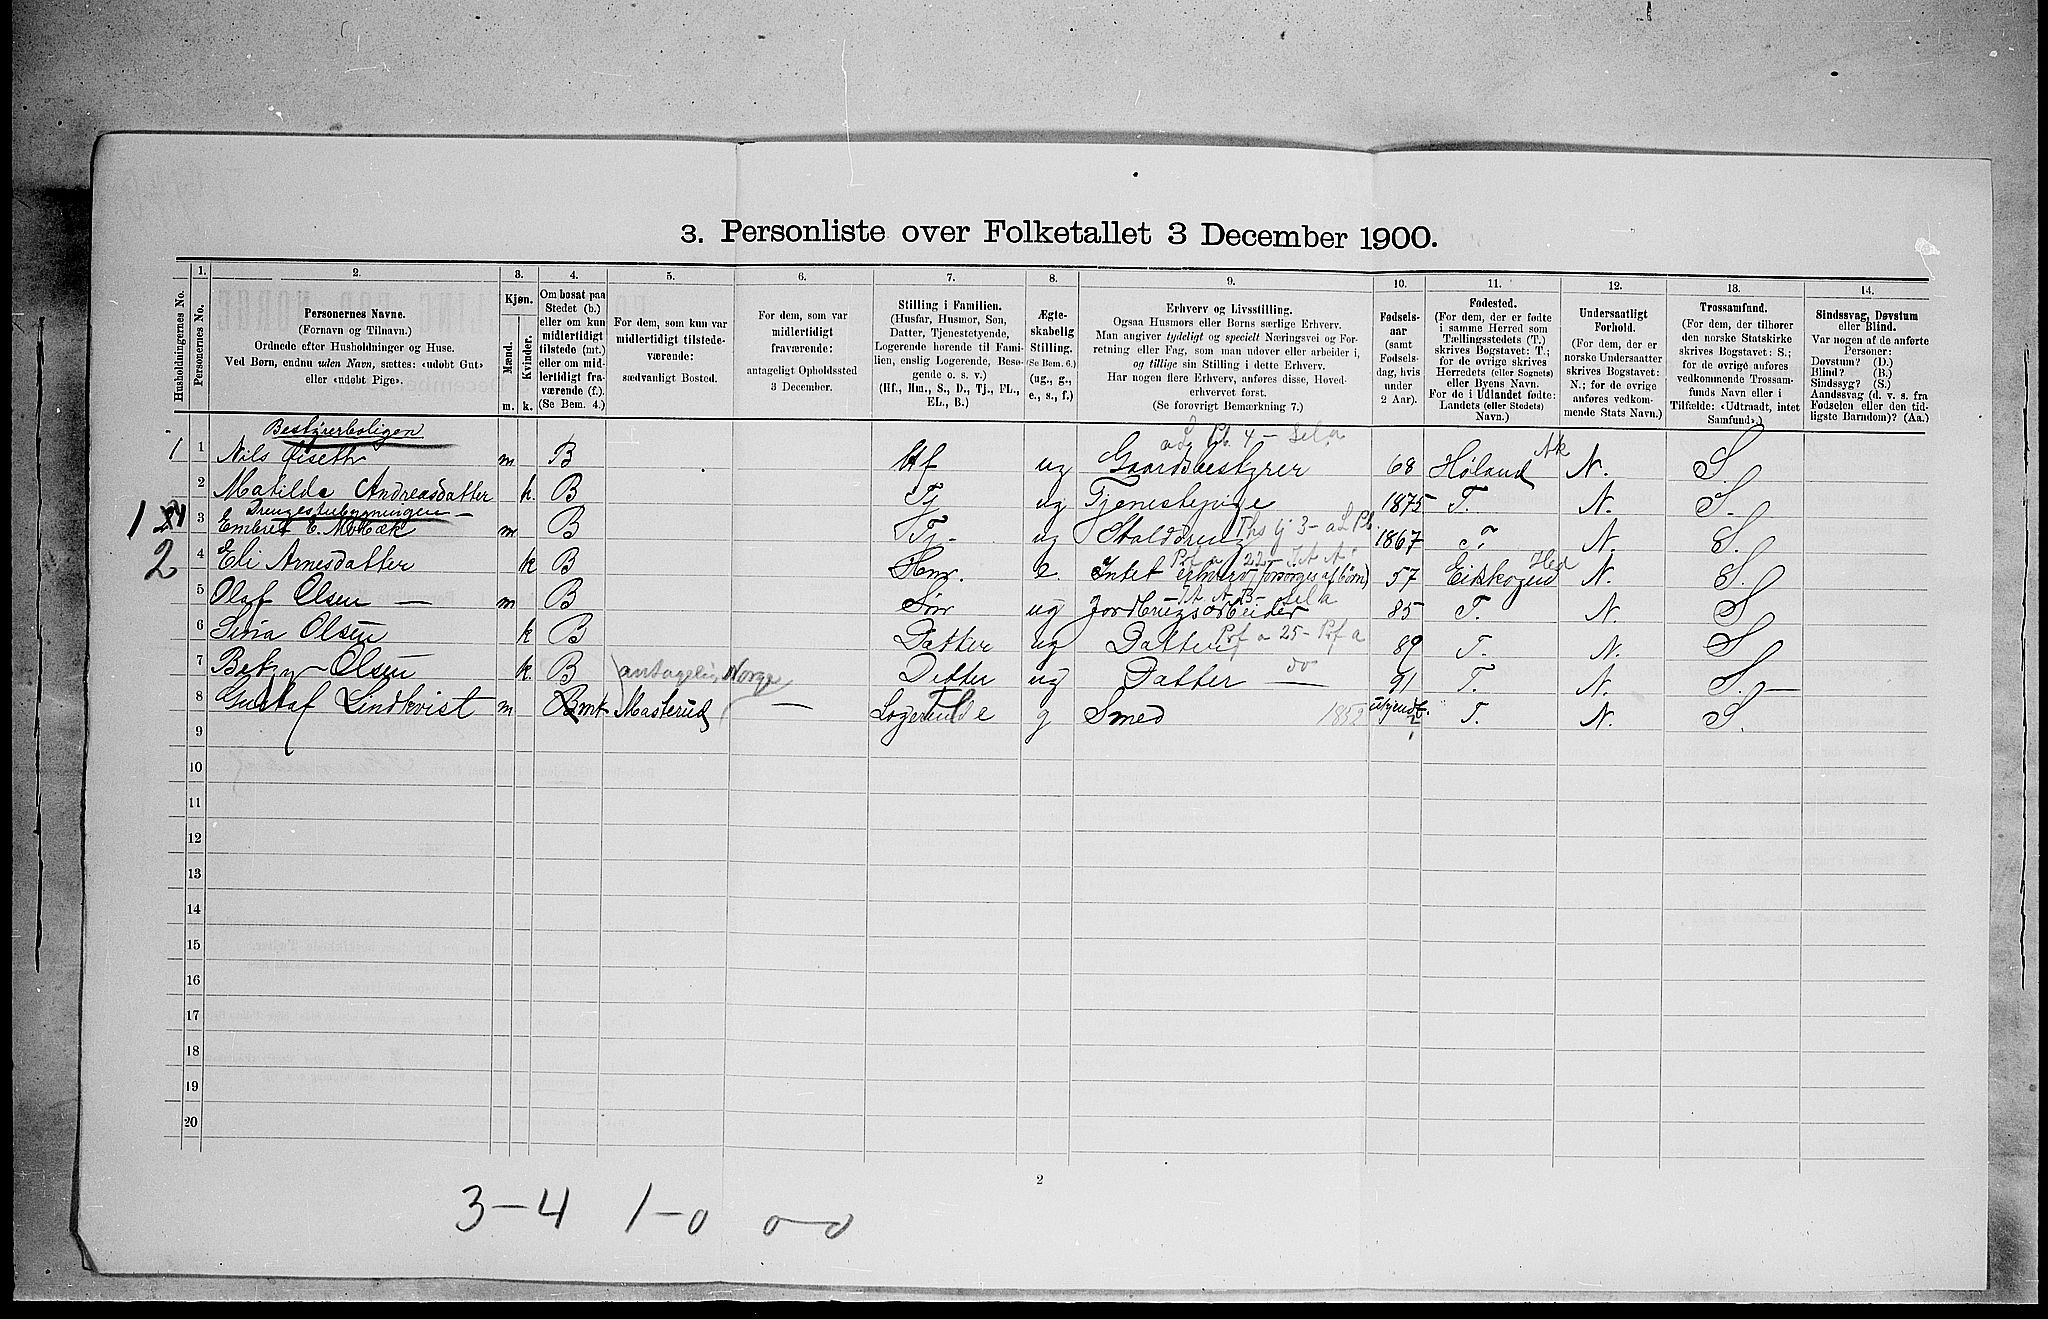 3. Personliste over Folketallet 3 December 1900.
Husholdningernes No.
1.
Personernes No.
2.
Personernes Navne.
(Fornavn og Tilnavn.)
Ordnede efter Husholdninger og Huse.
Ved Børn, endnu uden Navn, sættes: «udøbt Gut»
eller «udøbt Pige».
3.
Kjøn.
Mænd.
Kvinder.
m.
k.
4.
Om bosat paa
Stedet (b.)
eller om kun
midlertidigt
tilstede (mt.)
eller om mid-
lertidigt fra-
værende (f.).
(Se Bem. 4.)
5.
For dem, som kun var
midlertidigt tilstede-
værende:
sædvanligt Bosted.
6.
For dem, som var
midlertidigt
fraværende:
antageligt Opholdssted
3 December.
7.
Stilling i Familien.
(Husfar, Husmor, Søn,
Datter, Tjenestetyende,
Logerende hørende til Fami-
lien, enslig Logerende, Besø-
gende o. s. v.)
(Hf., Hm., S., D., Tj., FL.,
EL., B.)
8.
Ægte-
skabelig
Stilling.
(Se Bem. 6.)
(ug., g.,
e., s., f.)
9.
Erhverv og Livsstilling.
Ogsaa Husmors eller Børns særlige Erhverv.
Man angiver tydeligt og specielt Næringsvei og For-
retning eller Fag, som man udøver eller arbeider i,
og tillige sin Stilling i dette Erhverv.
Har nogen flere Erhverv, anføres disse, Hoved-
erhvervet først.
(Se forøvrigt Bemærkning 7.)
10.
Fødsels-
aar
(samt
Fødsels-
dag, hvis
under
2 Aar).
11.
Fødested.
(For dem, der er fødte
i samme Herred som
Tællingsstedets (T.)
skrives Bogstavet: T.;
for de øvrige skrives
Herredets (eller Sognets)
eller Byens Navn.
For de i Udlandet fødte:
Landets (eller Stedets)
Navn.)
12.
Undersaatligt
Forhold.
(For dem, der er
norske Undersaatter
skrives Bogstavet:
N.; for de øvrige
anføres vedkom-
mende Stats Navn.)
13.
Trossamfund.
(For dem, der tilhører
den norske Statskirke
skrives Bogstavet: S.;
for de øvrige anføres
vedkommende Trossam-
funds Navn eller i
Tilfælde: «Udtraadt, intet
Samfund».)
14.
Sindssvag, Døvstum
eller Blind.
Var nogen af de anførte
Personer:
Døvstum? (D.)
Blind? (B.)
Sindssyg? (S.)
Aandssvag (d. v. s. fra
Fødselen eller den tid-
ligste Barndom)? (Aa.)
Bestyrerboligen
1 1 Nils m B Hf ug Gaardsbestyrer 68 Høland Ak N. S.
2 Matilde Andreasdatter k. B Tj ug Tjenestepige 1875 T. N. S.
Drengestubygningen
1 3 Embret E. m B Tj. ug Stalddreng 1867 T. N. S.
2 4 Eli Arnesdatter k B Hm. e. Intet erhverv (forsørges af børn) 57 Eidskogen Hed N. S.
5 Olaf Olsen m B Søn ug Jordbrugsarbeider 85 T. N. S
6 Sina Olsen k B Datter ug Datter 89 T. N. S.
7 Betzy Olsen k. B antagelig Norge Datter ug Datter do 91 T. N. S.
8 Gustaf Lindkvist m mt Masterud Logerende g Smed 1852 T. N. S.
9
10
11
12
13
14
15
16
17
18
19
20
2
3-4 1-0 0-0